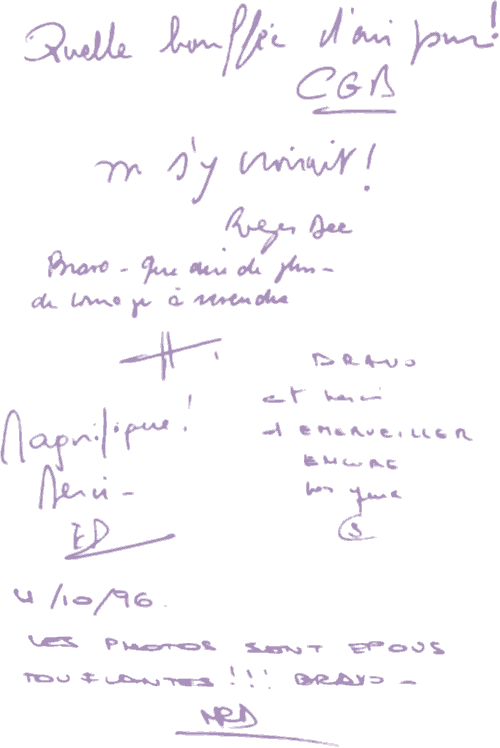 Quelle bouffée d'air pur!
CGB
on s'y croirait!
Roger Dee
Bravo - que dire de plus -
du courage à revendre
Magnifique!
Merci -
ED
BRAVO
et merci
d'EMERVEILLER
ENCORE
nos yeux
4/10/96.
LES PHOTOS SONT EPOUS
TOUFLANTES!!! BRAVO -
MRD